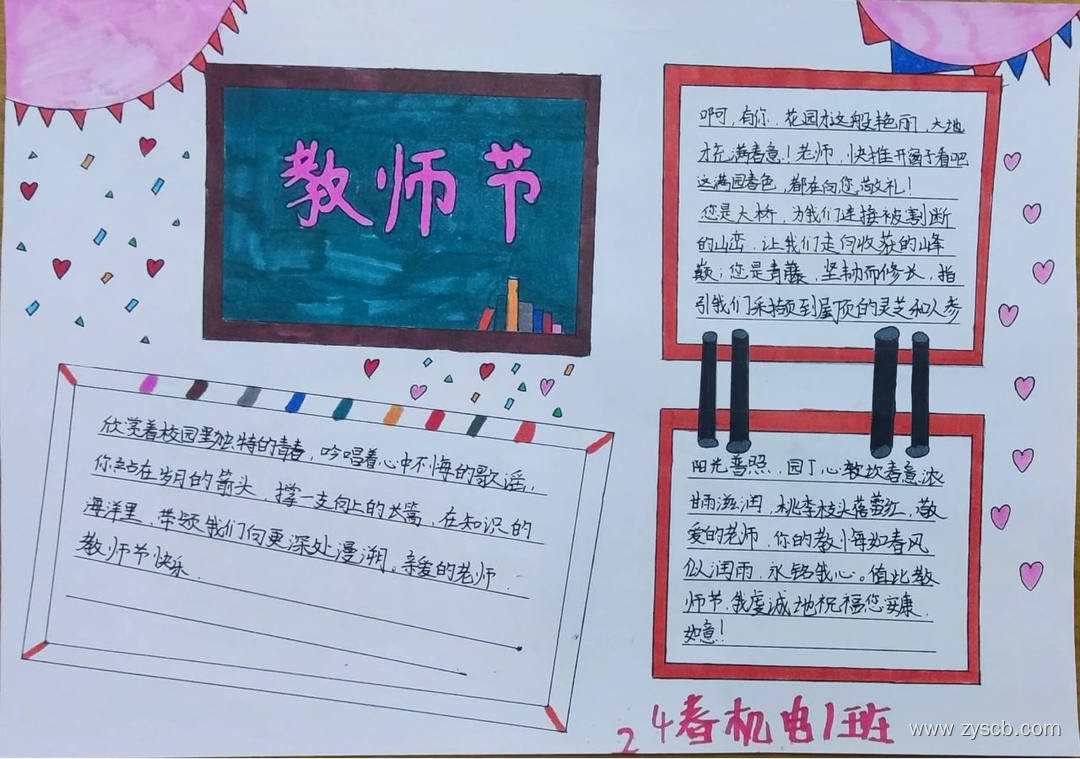 教师节
啊，有你，花园才这般艳丽，大地
才充满春意！老师，快推开窗子看吧
这满园春色，都在向您敬礼！
您是大桥，为我们连接被割断
的山峦，让我们走向收获的峰
巅；您是青藤，坚韧而修长，指
引我们采撷到崖顶的灵芝和人参
欣赏着校园里独特的青春，吟唱着心中不悔的歌谣，
你站在岁月的箭头，撑一支向上的长篙，在知识的
海洋里，带领我们向更深处漫溯。亲爱的老师，
教师节快乐．
阳光普照，园丁心坎春意浓
甘雨滋润，桃李枝头蓓蕾红，敬
爱的老师，你的教悔如春风
似润雨，永铭我心。值此教
师节，我虔诚地祝福您安康，
如意！
24春机电1班
www.zyscb.com